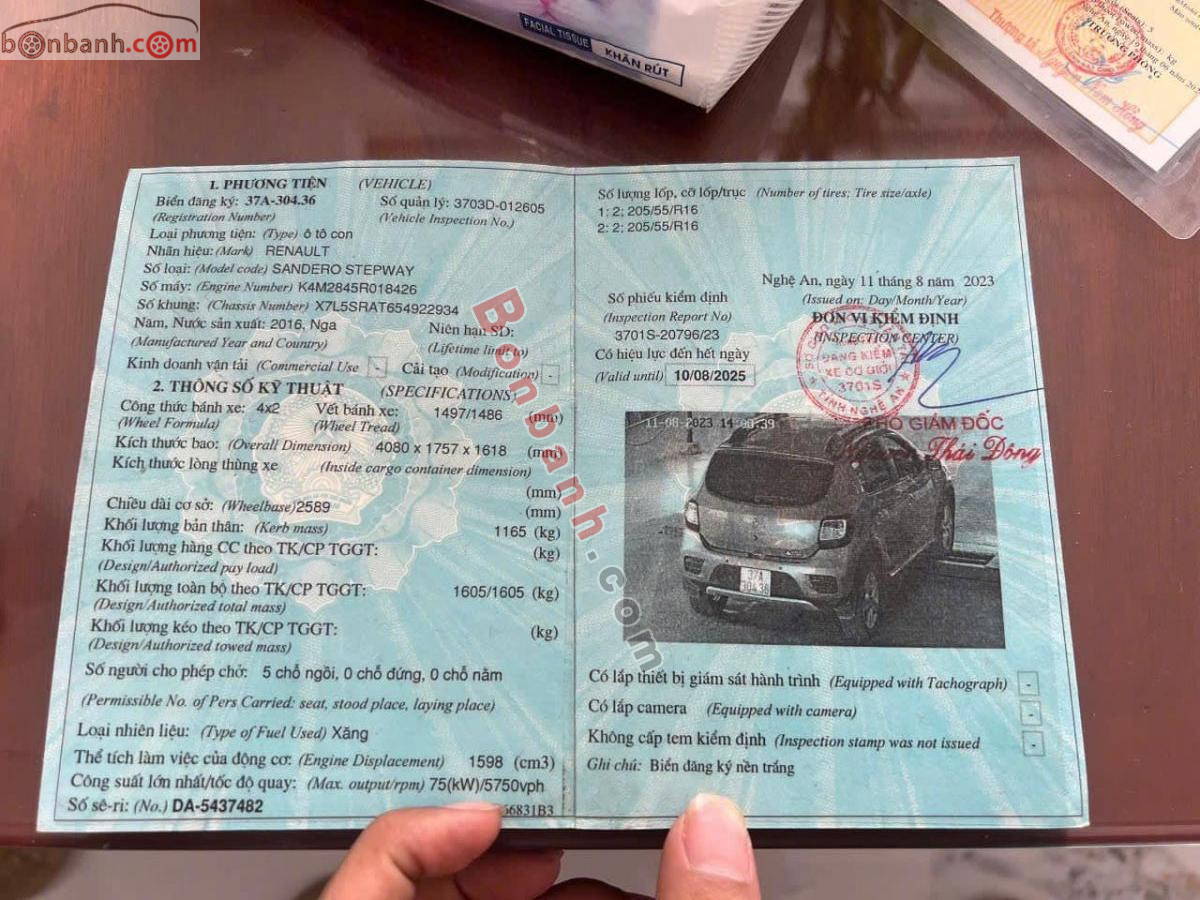 bonbanh.com
FACIAL TISSUE
KHĂN RÚT
(Seats): 5
TRƯỞNG PHÒNG
1. PHƯƠNG TIỆN (VEHICLE)
Biển đăng ký: 37A-304.36 Số quản lý: 3703D-012605
(Registration Number) (Vehicle Inspection No.)
Loại phương tiện: (Type) ô tô con
Nhãn hiệu: (Mark) RENAULT
Số loại: (Model code) SANDERO STEPWAY
Số máy: (Engine Number) K4M2845R018426
Số khung: (Chassis Number) X7L5SRAT654922934
Năm, Nước sản xuất: 2016, Nga Niên hạn SD:
(Manufactured Year and Country) (Lifetime limit to)
Kinh doanh vận tải (Commercial Use - Cải tạo (Modification) -
2. THÔNG SỐ KỸ THUẬT (SPECIFICATIONS)
Công thức bánh xe: 4x2 Vết bánh xe: 1497/1486 (mm)
(Wheel Formula) (Wheel Tread)
Kích thước bao: (Overall Dimension) 4080 x 1757 x 1618 (mm)
Kích thước lòng thùng xe (Inside cargo container dimension)
(mm)
Chiều dài cơ sở: (Wheelbase) 2589 (mm)
Khối lượng bản thân: (Kerb mass) 1165 (kg)
Khối lượng hàng CC theo TK/CP TGGT: (kg)
(Design/Authorized pay load)
Khối lượng toàn bộ theo TK/CP TGGT: 1605/1605 (kg)
(Design/Authorized total mass)
Khối lượng kéo theo TK/CP TGGT: (kg)
(Design/Authorized towed mass)
Số người cho phép chở: 5 chỗ ngồi, 0 chỗ đứng, 0 chỗ nằm
(Permissible No. of Pers Carried: seat, stood place, laying place)
Loại nhiên liệu: (Type of Fuel Used) Xăng
Thể tích làm việc của động cơ: (Engine Displacement) 1598 (cm3)
Công suất lớn nhất/tốc độ quay: (Max. output/rpm) 75(kW)/5750vph
Số sê-ri: (No.) DA-5437482 66831B3
Số lượng lốp, cỡ lốp/trục (Number of tires; Tire size/axle)
1: 2; 205/55/R16
2: 2; 205/55/R16
Nghệ An, ngày 11 tháng 8 năm 2023
Số phiếu kiểm định (Issued on: Day/Month/Year)
(Inspection Report No) ĐƠN VỊ KIỂM ĐỊNH
3701S-20796/23 (INSPECTION CENTER)
Có hiệu lực đến hết ngày
(Valid until) 10/08/2025
ĐĂNG KIỂM
XE CƠ GIỚI
3701S
TỈNH NGHỆ AN
PHÓ GIÁM ĐỐC
Thái Dông
11-08-2023 14:00:39
37A
304.36
Bonbanh.com
Có lắp thiết bị giám sát hành trình (Equipped with Tachograph) -
Có lắp camera (Equipped with camera) -
Không cấp tem kiểm định (Inspection stamp was not issued -
Ghi chú: Biển đăng ký nền trắng